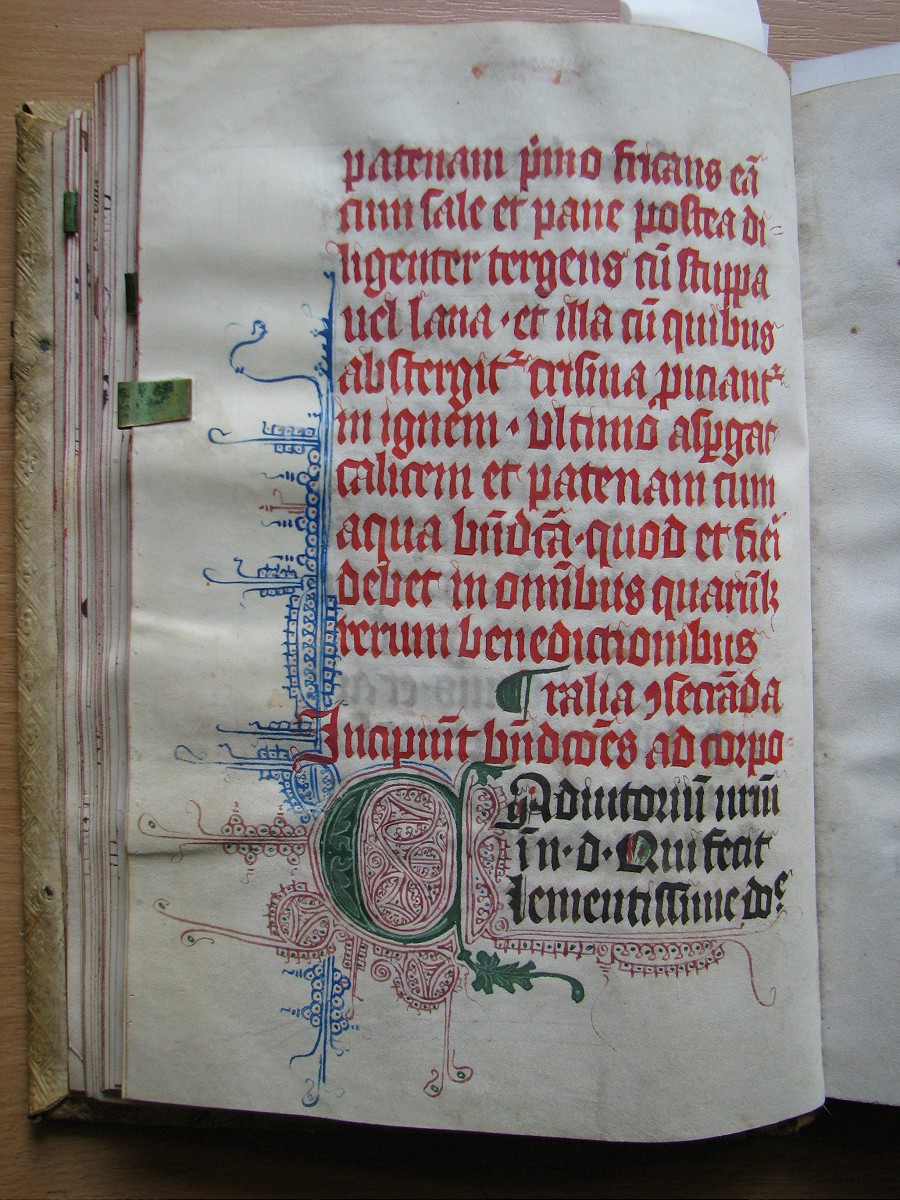 patenam p̾imo fricans eā
cum sale et pane postea di⸗
ligenter tergens cū stuppa
uel lana · et illa cū quibus
abstergit᷑ crisma p̱iciant᷑
in ignem · Ultimo asp̱gat
calicem et patenam cum
aqua bn̄dc̄a · quod et fieī
debet in om̄ibus quarūꝫ
rerum benedictionibus
¶ ralia ꝯsecrāda
Incipiūt bn̄dcōēs ad corpo
Adiutoriū nr̄ū
in · d · Qui fecit
Clementissime do᷑